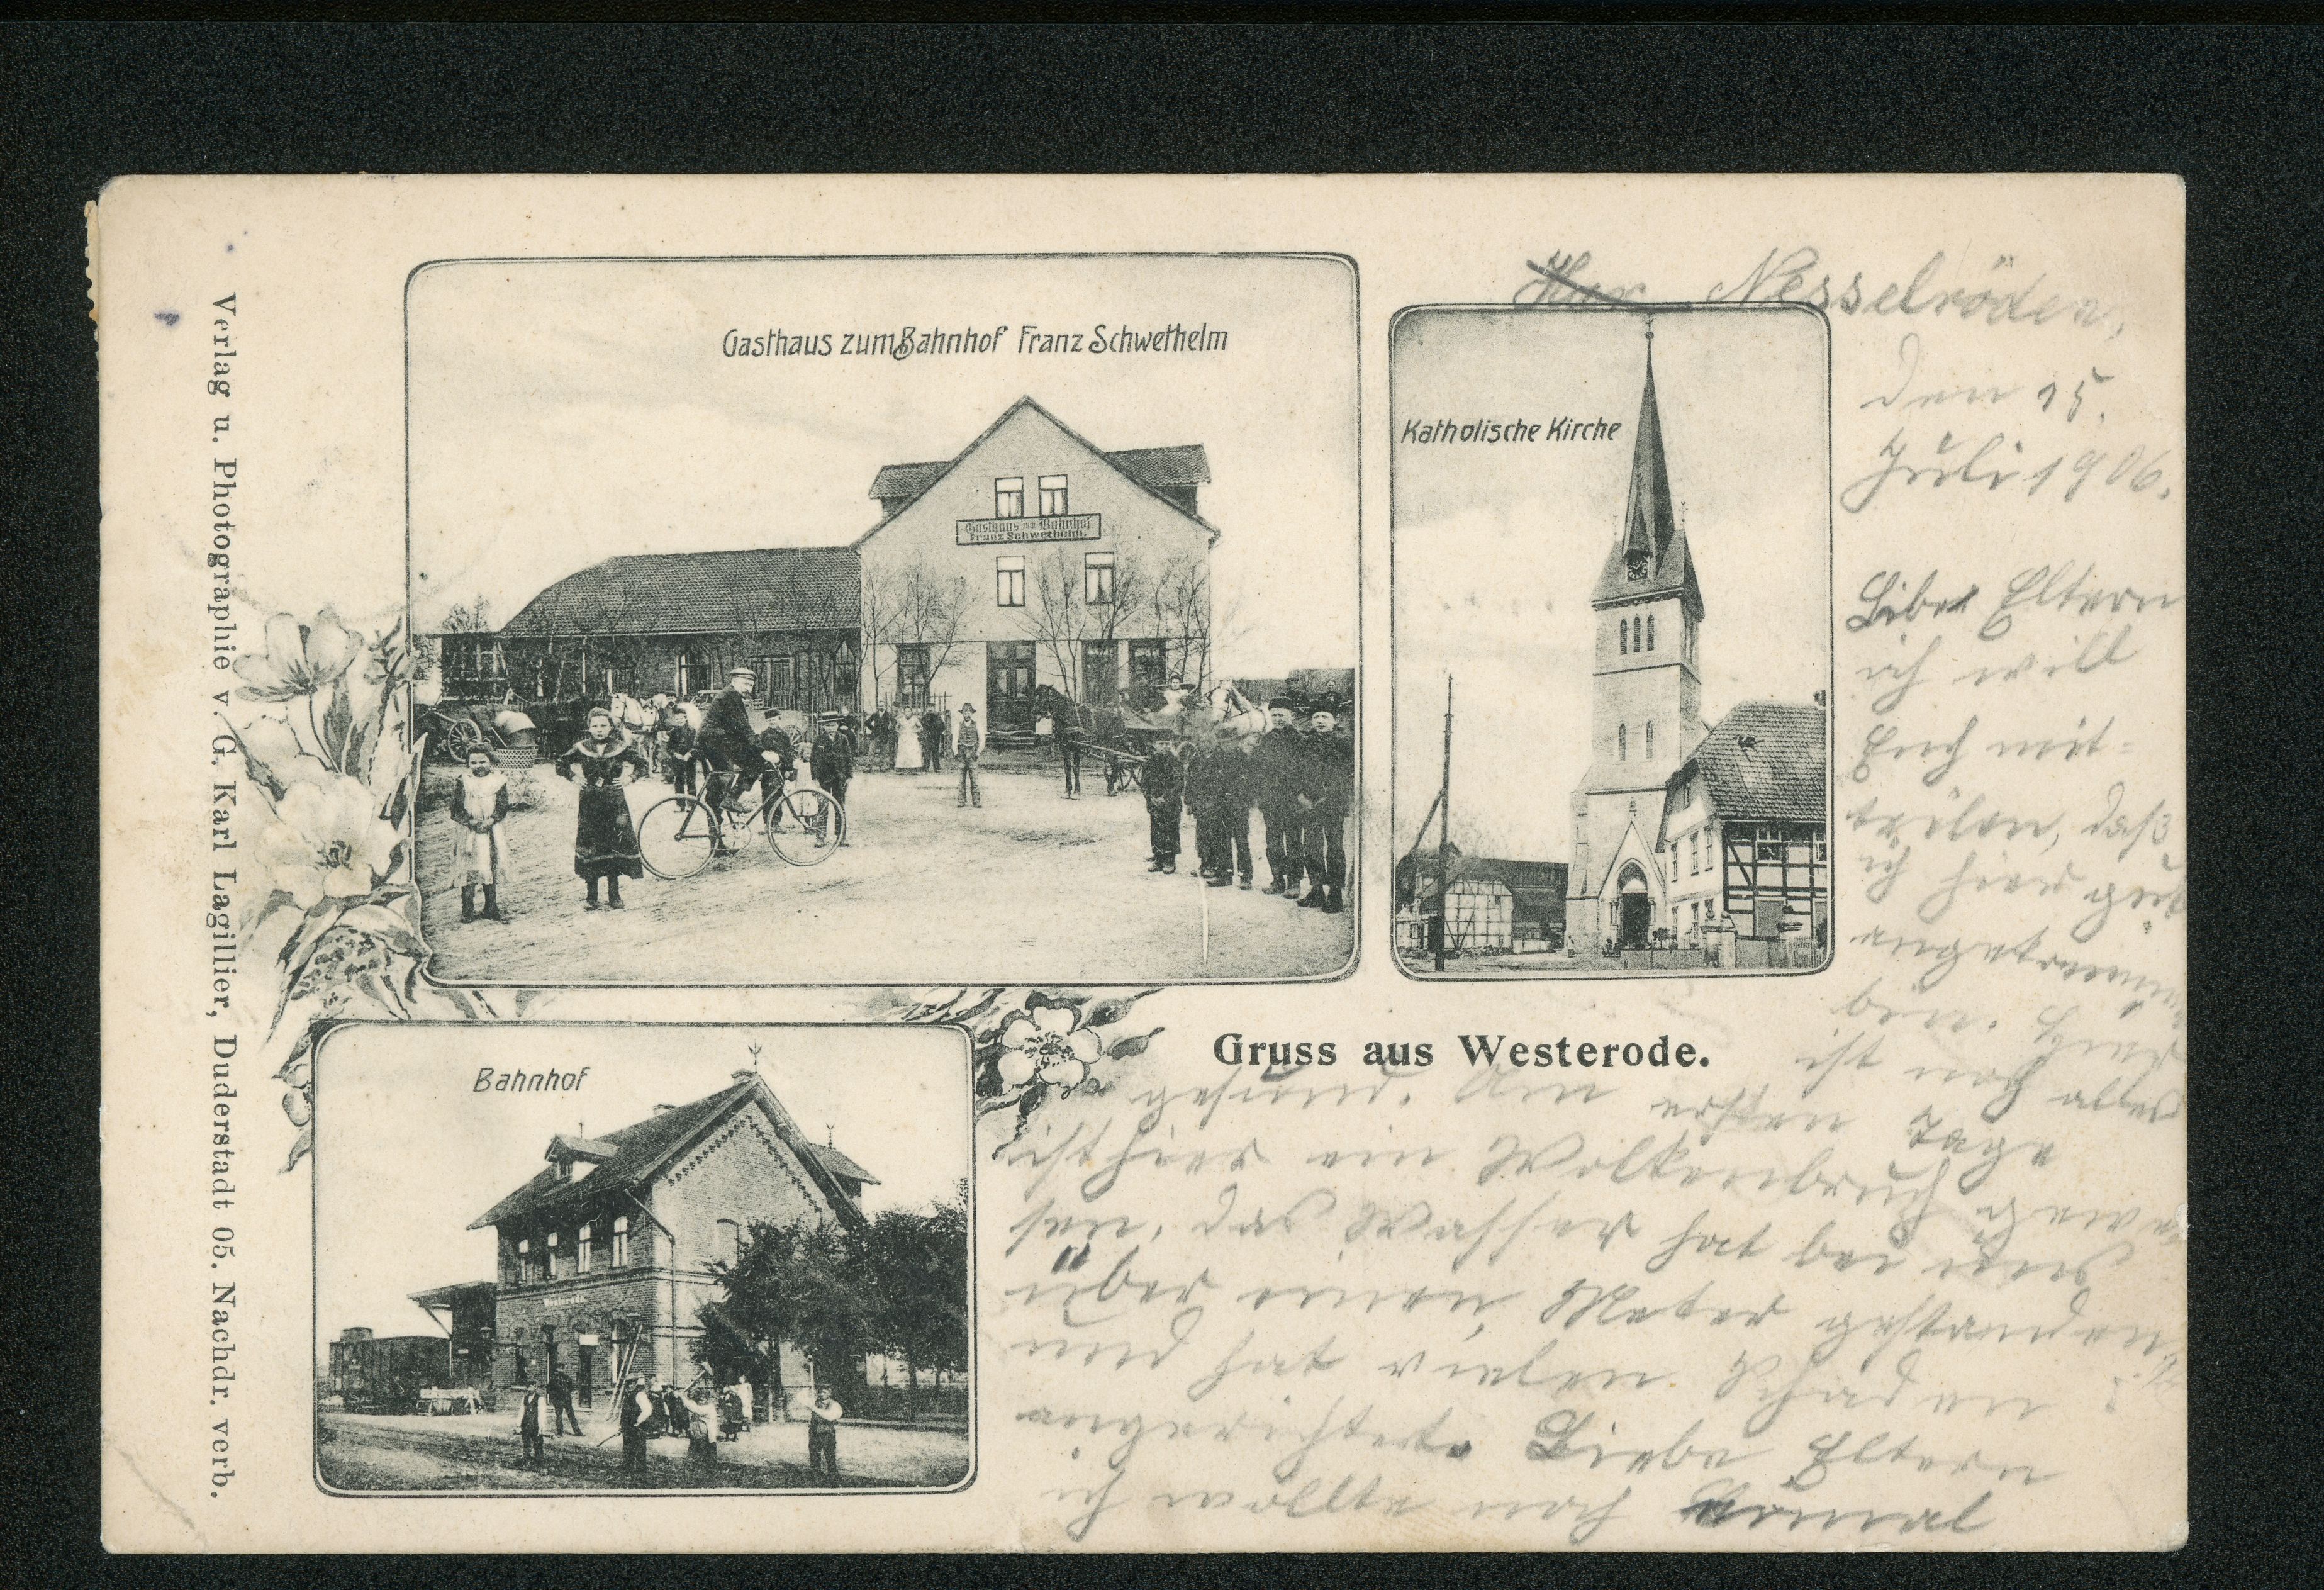 Verlag u. Photographie v. G. Karl Lagillier, Duderstadt 05. Nachdr. verb.
Gasthaus zum Bahnhof Franz Schwethelm
Gasthaus zum Bahnhof
Franz Schwethelm.
Katholische Kirche
Bahnhof
Westerode
Gruss aus Westerode.
Nesselröden,
den 15.
Juli 1906.
Libe Eltern
ich will
Euch mit=
teilen, daß
ich hier gut
angekommen
bin.
ist noch alles
gesund. Am ersten Tage
ist hier ein Wolkenbruch gewe
sen, das Wasser hat bei uns
über einen Meter gestanden
und hat vielen Schaden
angerichtet. Liebe Eltern
ich wollte noch einmal